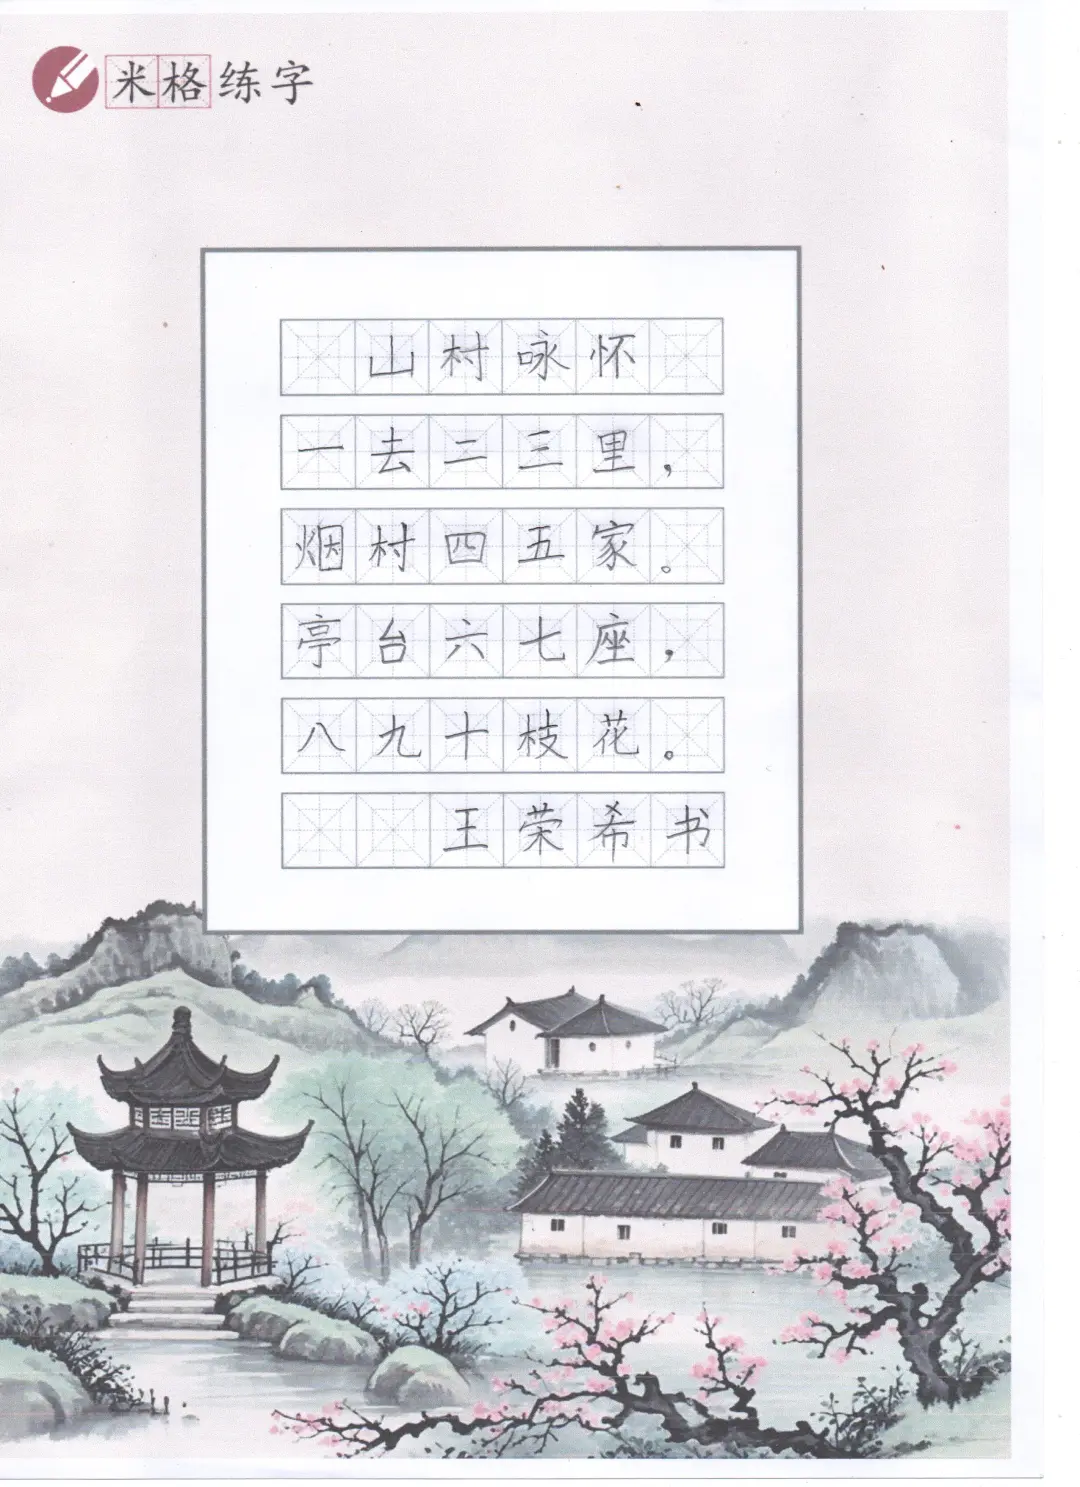 米格练字
山村咏怀
一去二三里，
烟村四五家。
亭台六七座，
八九十枝花。
王荣希书